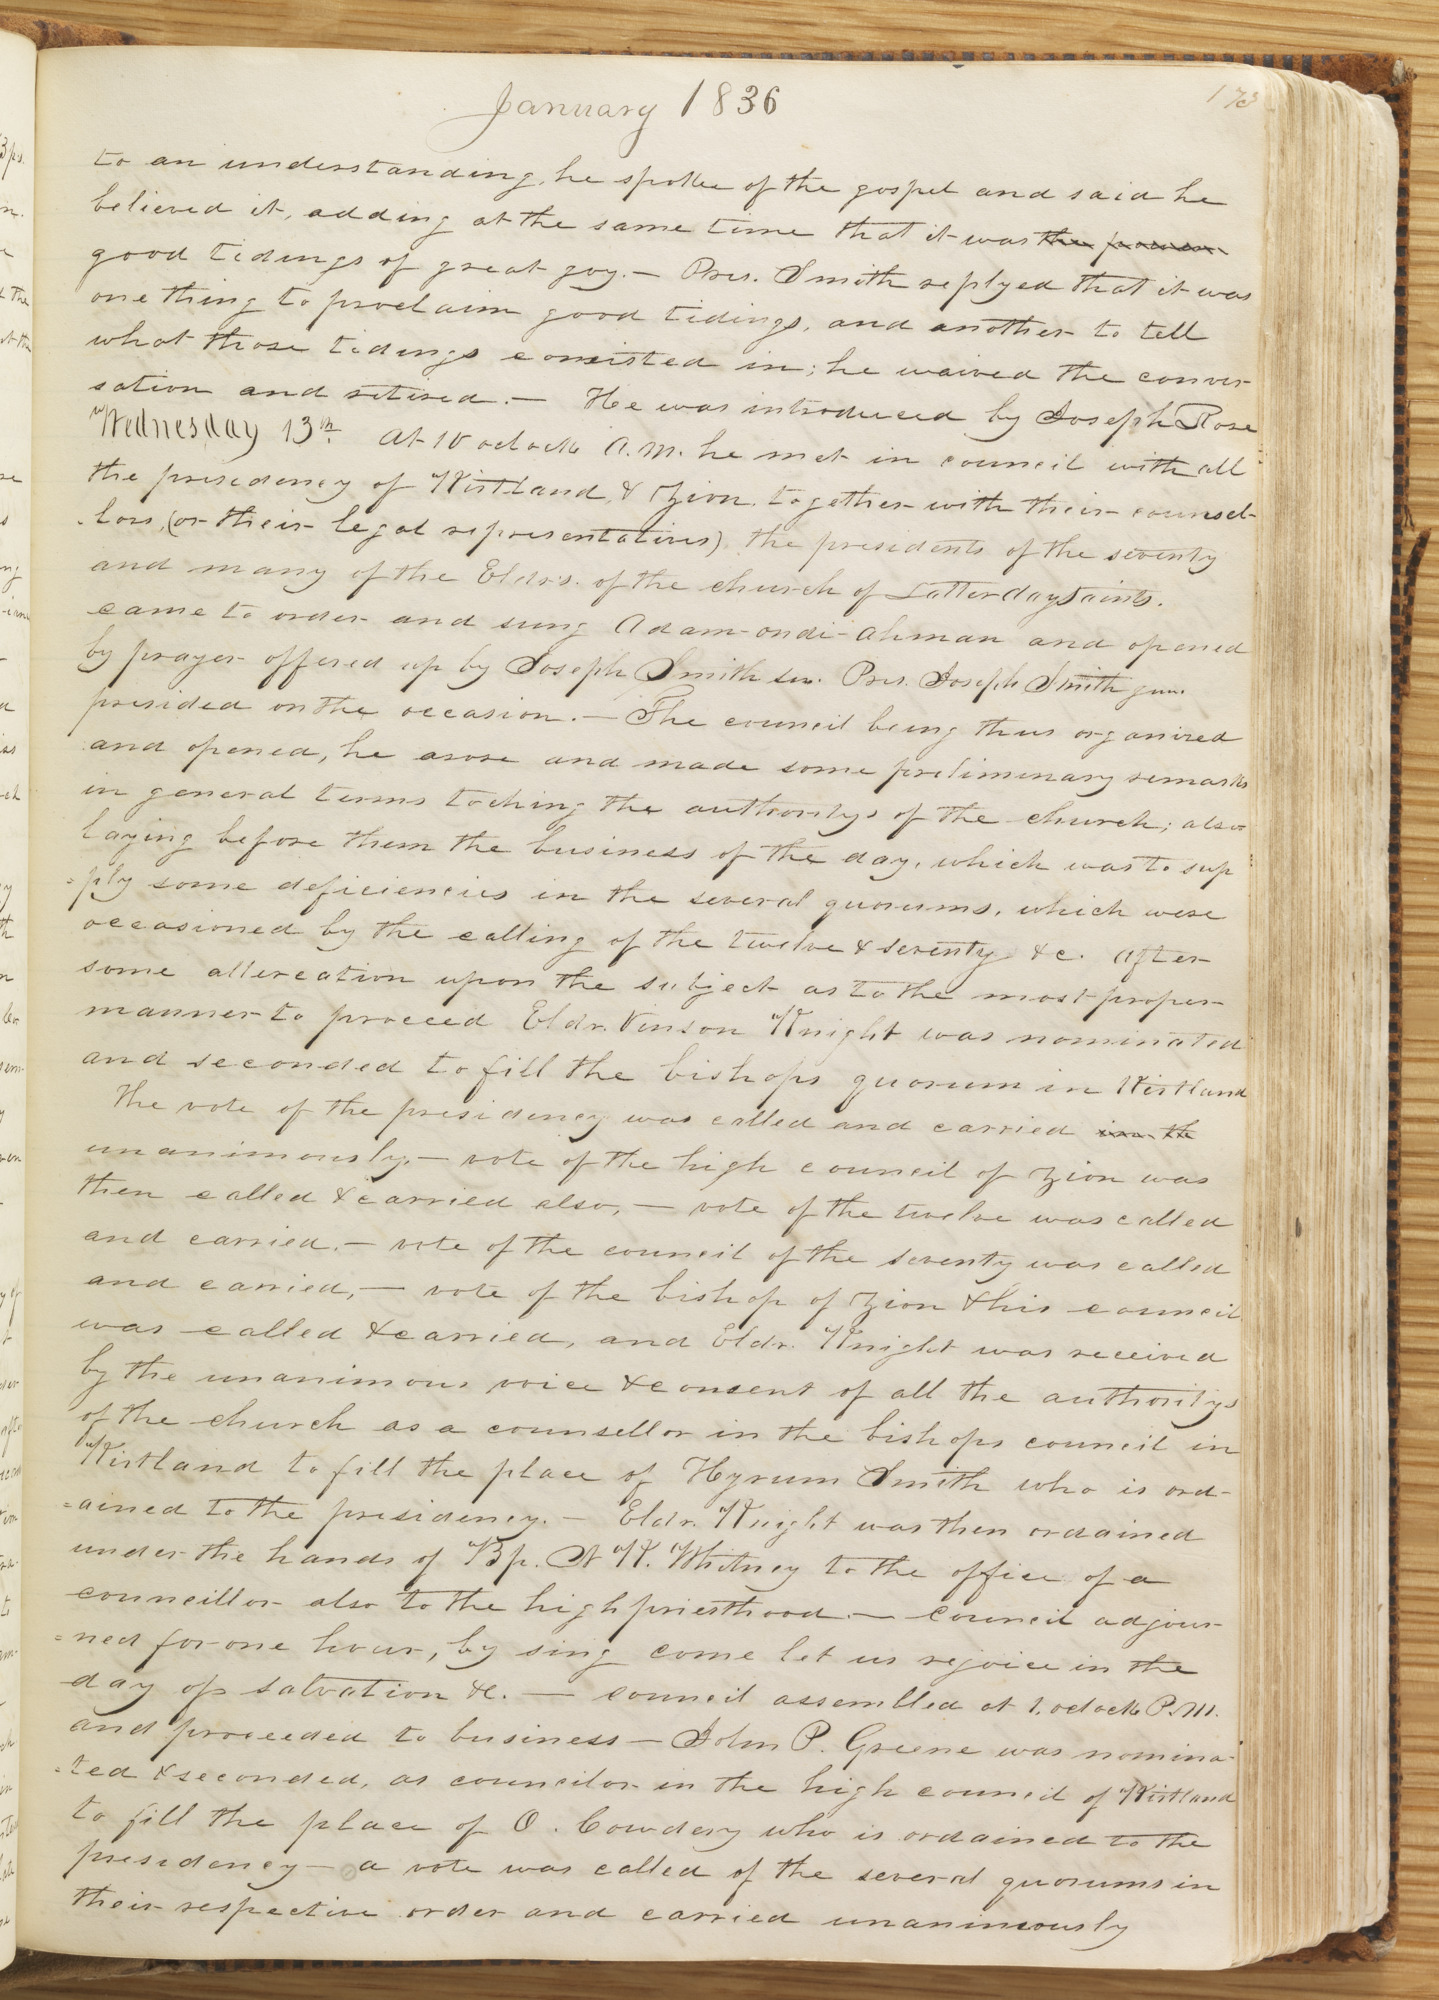 January 1836
173
to an understanding, he spoke of the gospel and said he
believed it, adding at the same time that it was the
good tidings of great joy.— Pres. Smith replyed that it was
one thing to proclaim good tidings, and another to tell
what those tidings consisted in; he waived the conver-
sation and retired.— He was introduced by Joseph Rose
Wednesday 13th. At 10 oclock A.M. he met in council with all
the presidency of Kirtland, & Zion, together with their counsel-
-lors, (or their legal representatives), the presidents of the seventy
and many of the Eldrs. of the church of Latterday Saints.
came to order and sung Adam-ondi-Ahman and opened
by prayer offered up by Joseph Smith sen. Pres. Joseph Smith jun.
presided on the occasion.— The council being thus organized
and opened, he arose and made some preliminary remarks
in general terms toching the authoritys of the church; also
laying before them the business of the day, which was to sup
=ply some deficiencies in the several quorums, which were
occasioned by the calling of the twelve & seventy &c. After
some altercation upon the subject as to the most proper
manner to proceed Eldr. Vinson Knight was nominated
and seconded to fill the bishops quorum in Kirtland
The vote of the presidency was called and carried in th
unanimously.— vote of the high council of Zion was
then called & carried also,— vote of the twelve was called
and carried.— vote of the council of the seventy was called
and carried,— vote of the bishop of Zion & his council
was called & carried, and Eldr. Knight was received
by the unanimous voice & consent of all the authoritys
of the church as a counsellor in the bishops council in
Kirtland to fill the place of Hyrum Smith who is ord-
=ained to the presidency.— Eldr. Knight was then ordained
under the hands of Bp. N K. Whitney to the office of a
councillor also to the high priesthood.— council adjour-
=ned for one hour, by sing come let us rejoice in the
day of salvation &c.— council assembled at 1, oclock P.M.
and proceeded to business— John P. Greene was nomina-
=ted & seconded, as councilor in the high council of Kirtland
to fill the place of O. Cowdery who is ordained to the
presidency— a vote was called of the several quorums in
their respective order and carried unanimously